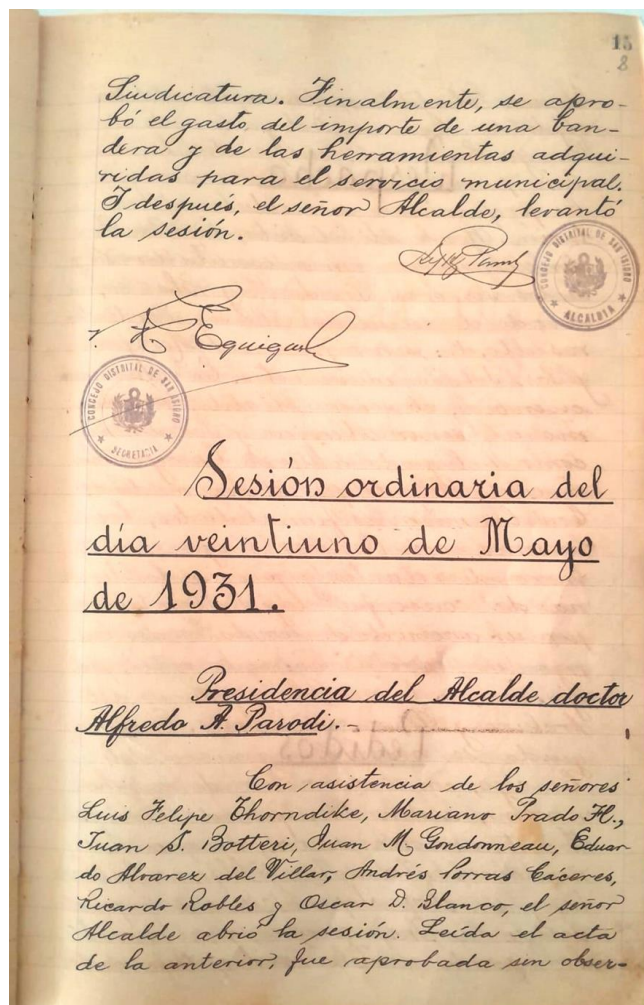 15
8
Sindicatura. Finalmente, se apro-
bó el gasto del importe de una ban-
dera y de las herramientas adqui-
ridas para el servicio municipal.
I después, el señor Alcalde, levantó
la sesión.
CONCEJO DISTRITAL DE SAN ISIDRO
ALCALDIA
CONCEJO DISTRITAL DE SAN ISIDRO
SECRETARIA
Sesión ordinaria del
día veintiuno de Mayo
de 1931.
Presidencia del Alcalde doctor
Alfredo A. Parodi.-
Con asistencia de los señores
Luis Felipe Thorndike, Mariano Prado H.,
Juan S. Botteri, Juan M. Gondonneau, Eduar-
do Alvarez del Villar, Andrés Porras Cáceres,
Ricardo Robles y Oscar D. Blanco, el señor
Alcalde abrió la sesión. Leída el acta
de la anterior, fue aprobada sin obser-